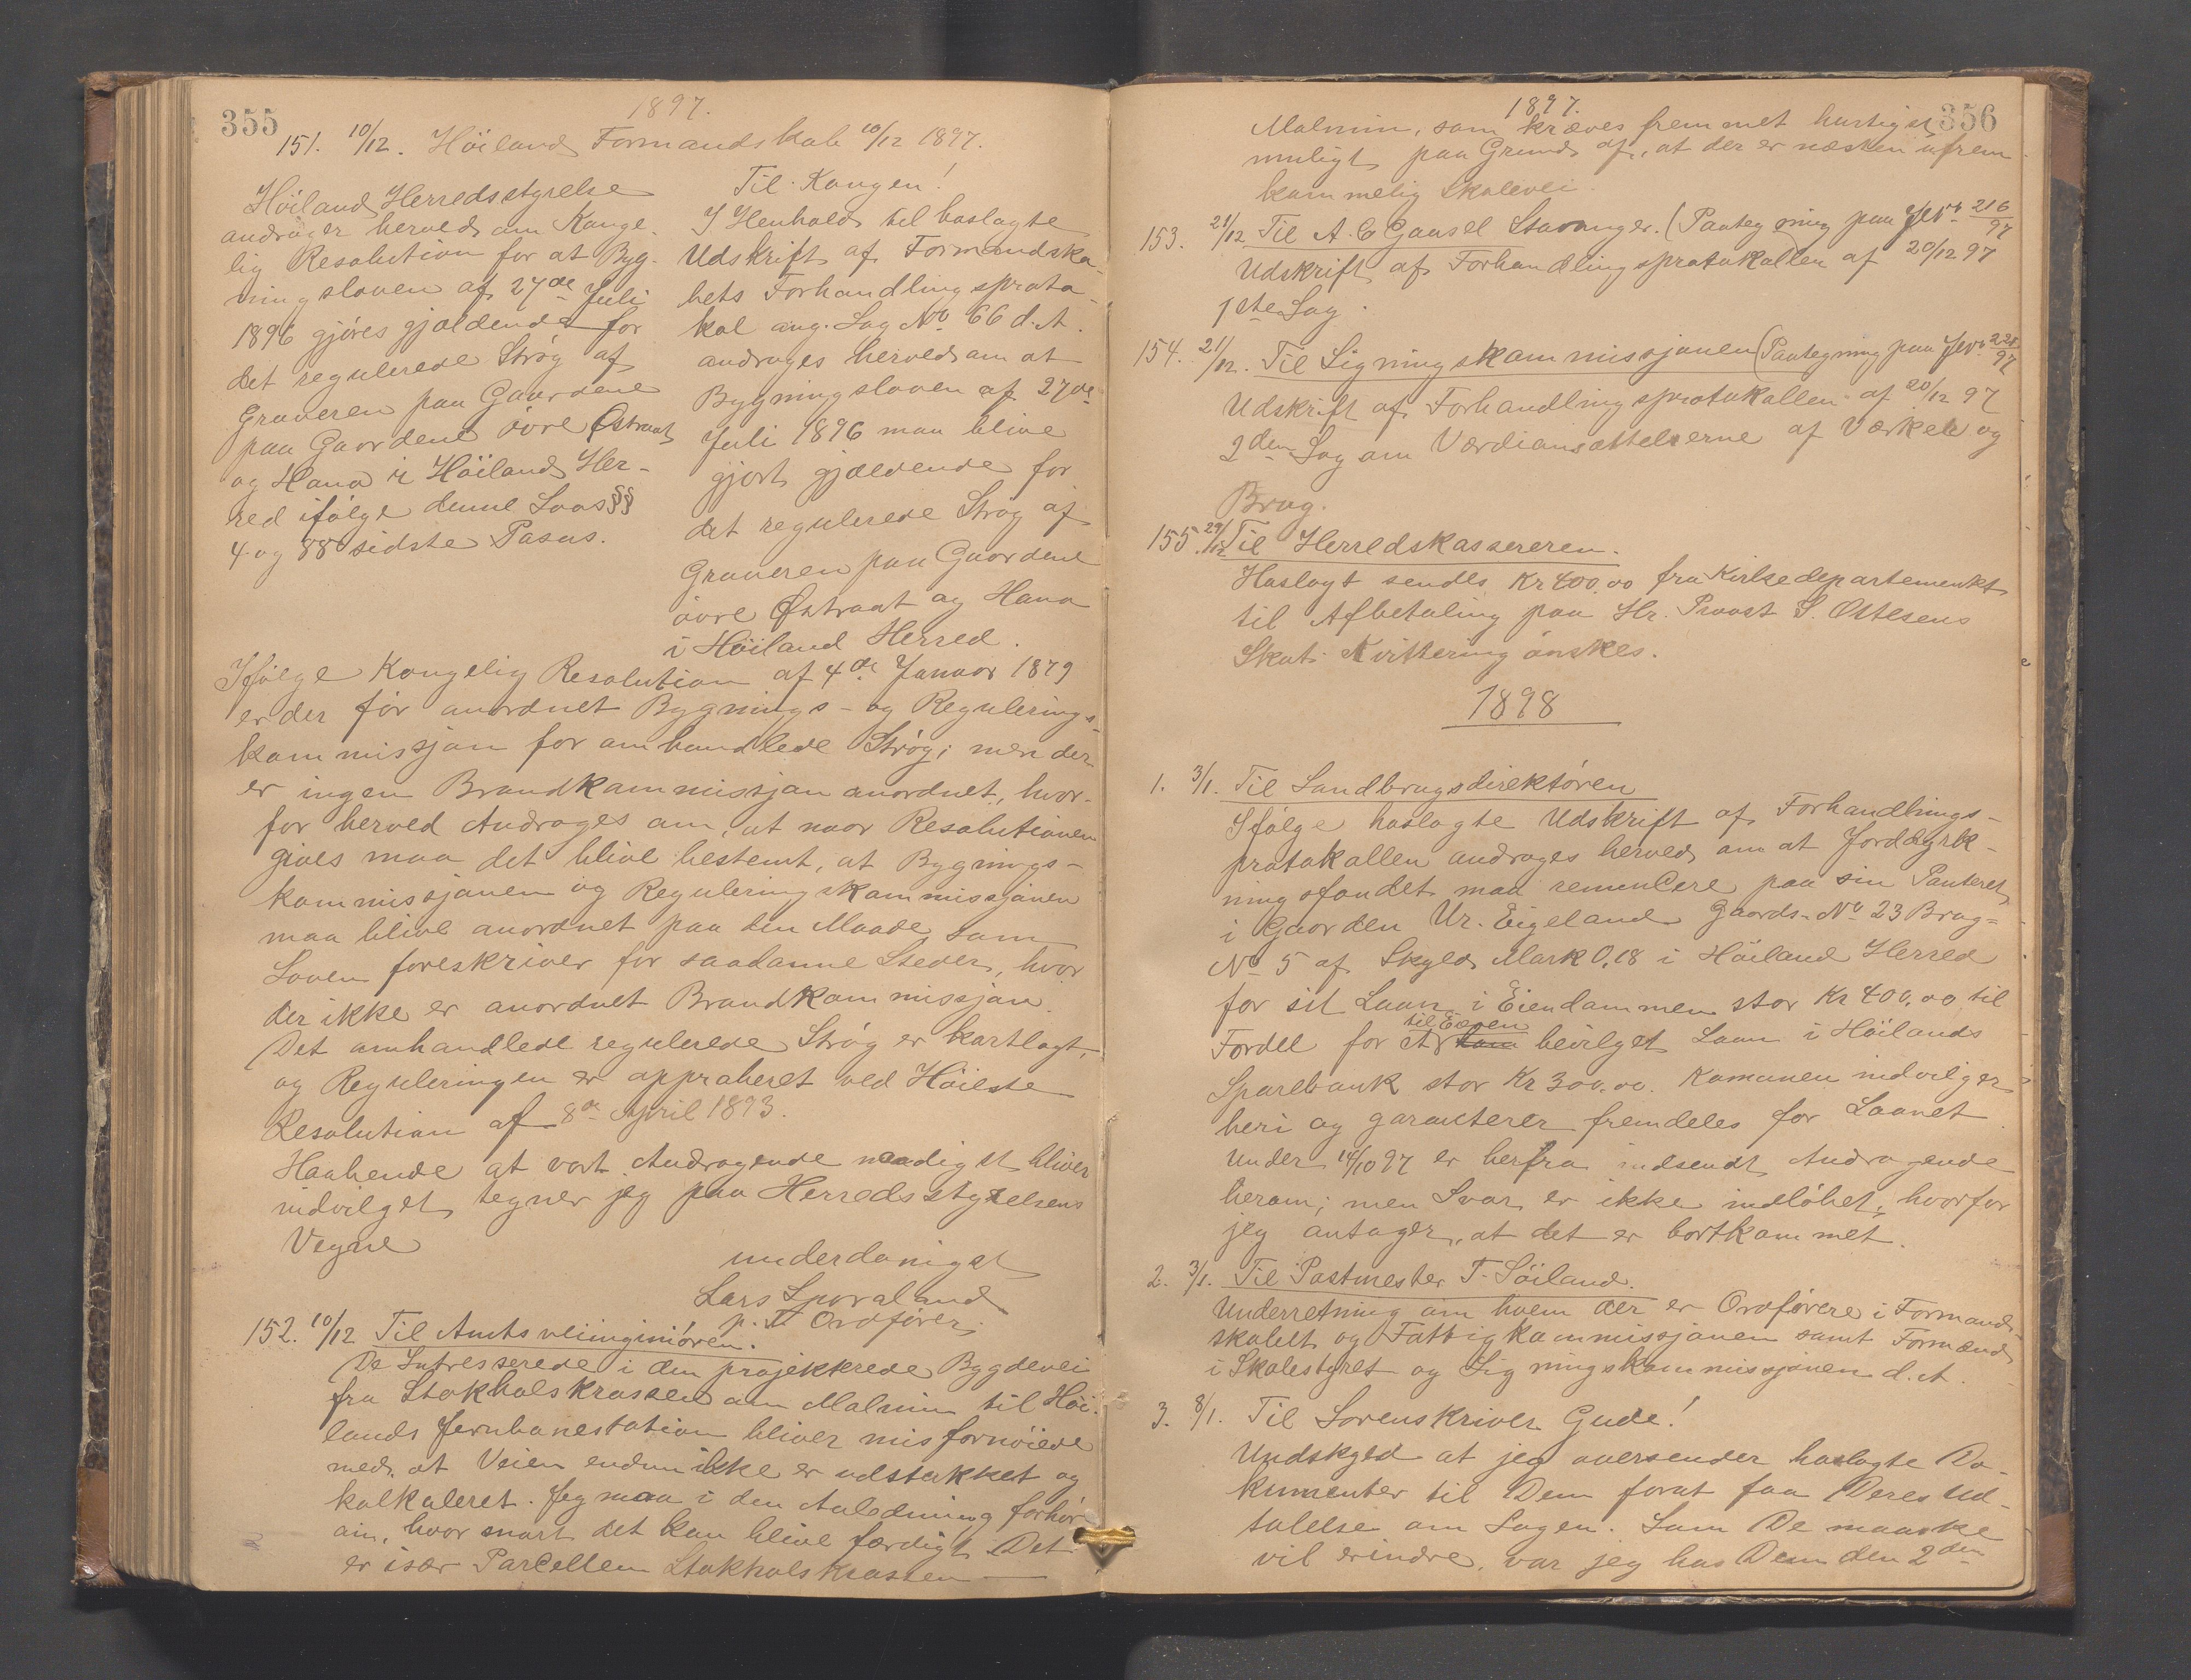 355
1897.
151. 10/12. Höiland Formandskab 10/12 1897.
Höiland Herredsstyrelse
andrager herved om Konge-
lig Resolution for at Byg-
ningsloven af 27de Juli
1896 gjöres gjældende for
det regulerede Strög af
Graveren paa Gaardene
paa Gaardene övre Østraat
og Hana i Höiland Her-
red ifölge denne Lovs §§
4 og 88 sidste Pasus.
Til Kongen!
I Henhold til hoslagte
Udskrift af Formandska-
bets Forhandlingsproto-
kol ang. Sag No 66 d. A.
andrages herved om at
Bygningsloven af 27de
Juli 1896 maa blive
gjort gjældende for
det regulerede Strög af
Graveren paa Gaardene
övre Østraat og Hana
i Höiland Herred.
Ifölge Kongelig Resolution af 4de Januar 1879
er der för anordnet Bygnings- og Regulerings-
kommissjon for omhandlede Strög; men der
er ingen Brandkommissjon anordnet, hvor-
for herved Androges om, at naar Resolutionen
gives maa det blive bestemt, at Bygnings-
kommissjonen og Reguleringskommissjonen
maa blive anordnet paa den Maade som
Loven foreskriver for saadanne Steder, hvor
der ikke er anordnet Brandkommissjon.
Det omhandlede regulerede Strög er kartlagt,
og Reguleringen er approberet ved Höieste
Resolution af 8de April 1893.
Haabende at vort Andragende naadigst bliver
indvilget tegner jeg paa Herredsstyrelsens
Vegne
underdanigst
Lars Sporaland
p. T. Ordförer
152. 10/12 Til Amtsveiinginiören.
De Intresserede i den projekterede Bygdevei
fra Stokholskrossen om Malmin til Höi-
lands Jernbanestation bliver misfornöiede
med, at Veien endnu ikke er udstukket og
kalkuleret. Jeg maa i den Anledning forhöre
om, hvor snart det kan blive færdigt. Det
er især Parcellen Stokholskrossen
356
1897.
Malmin, som kræves fremmet hurtigst
muligt paa Grund af, at der er næsten ufrem-
kommelig Skolevei.
153. 21/12 Til A. C Gausel Stavanger. (Paategning paa Jr No 216/97
Udskrift af Forhandlingsprotokollen af 20/12 97
1ste Sag.
154. 21/12. Til Ligningskommissjonen (Paategning paa Jr No 228/97
Udskrift af Forhandlingsprotokollen af 20/12 97
2den Sag om Værdiansættelserne af Værker og
Brug.
155. 29/12 Til Herredskassereren.
Hoslagt sendes Kr 400.00 fra Kirkedepartementet
til Afbetaling paa Hr. Provst S. Ottesens
Skat. Kvittering önskes.
1898
1. 3/1. Til Landbrugsdirektören
Ifölge hoslagte Udskrift af Forhandlings-
protokollen androges herved om at Jorddyrk-
ningsfondet maa renuncere paa sin Panteret
i Gaarden Ur. Eigeland Gaards-No 23 Brug-
No 5 af Skyld Mark 0,18 i Höiland Herred
for sit Laan i Eiendommen stor Kr 400.00 til
til Eieren
Fordel for et ham bevilget Laan i Höilands
Sparebank stor Kr 300.00. Komunen indvilger
heri og garanterer fremdeles for Laanet.
Under 14/10 97 er herfra indsendt Andragende
herom; men Svar er ikke indlöbet, hvorfor
jeg antager, at det er bortkommet.
2. 3/1. Til Postmester T. Söiland.
Underretning om hvem der er Ordförere i Formand-
skabet og Fattigkommissjonen samt Formænd
i Skolestyret og Ligningskommissjonen d. A.
3. 8/1. Til Sorenskriver Gude!
Undskyld at jeg oversender hoslagte Do-
kumenter til Dem forat faa Deres Ud-
talelse om Sagen. Som De maaske
vil erindre, var jeg hos Dem den 2den